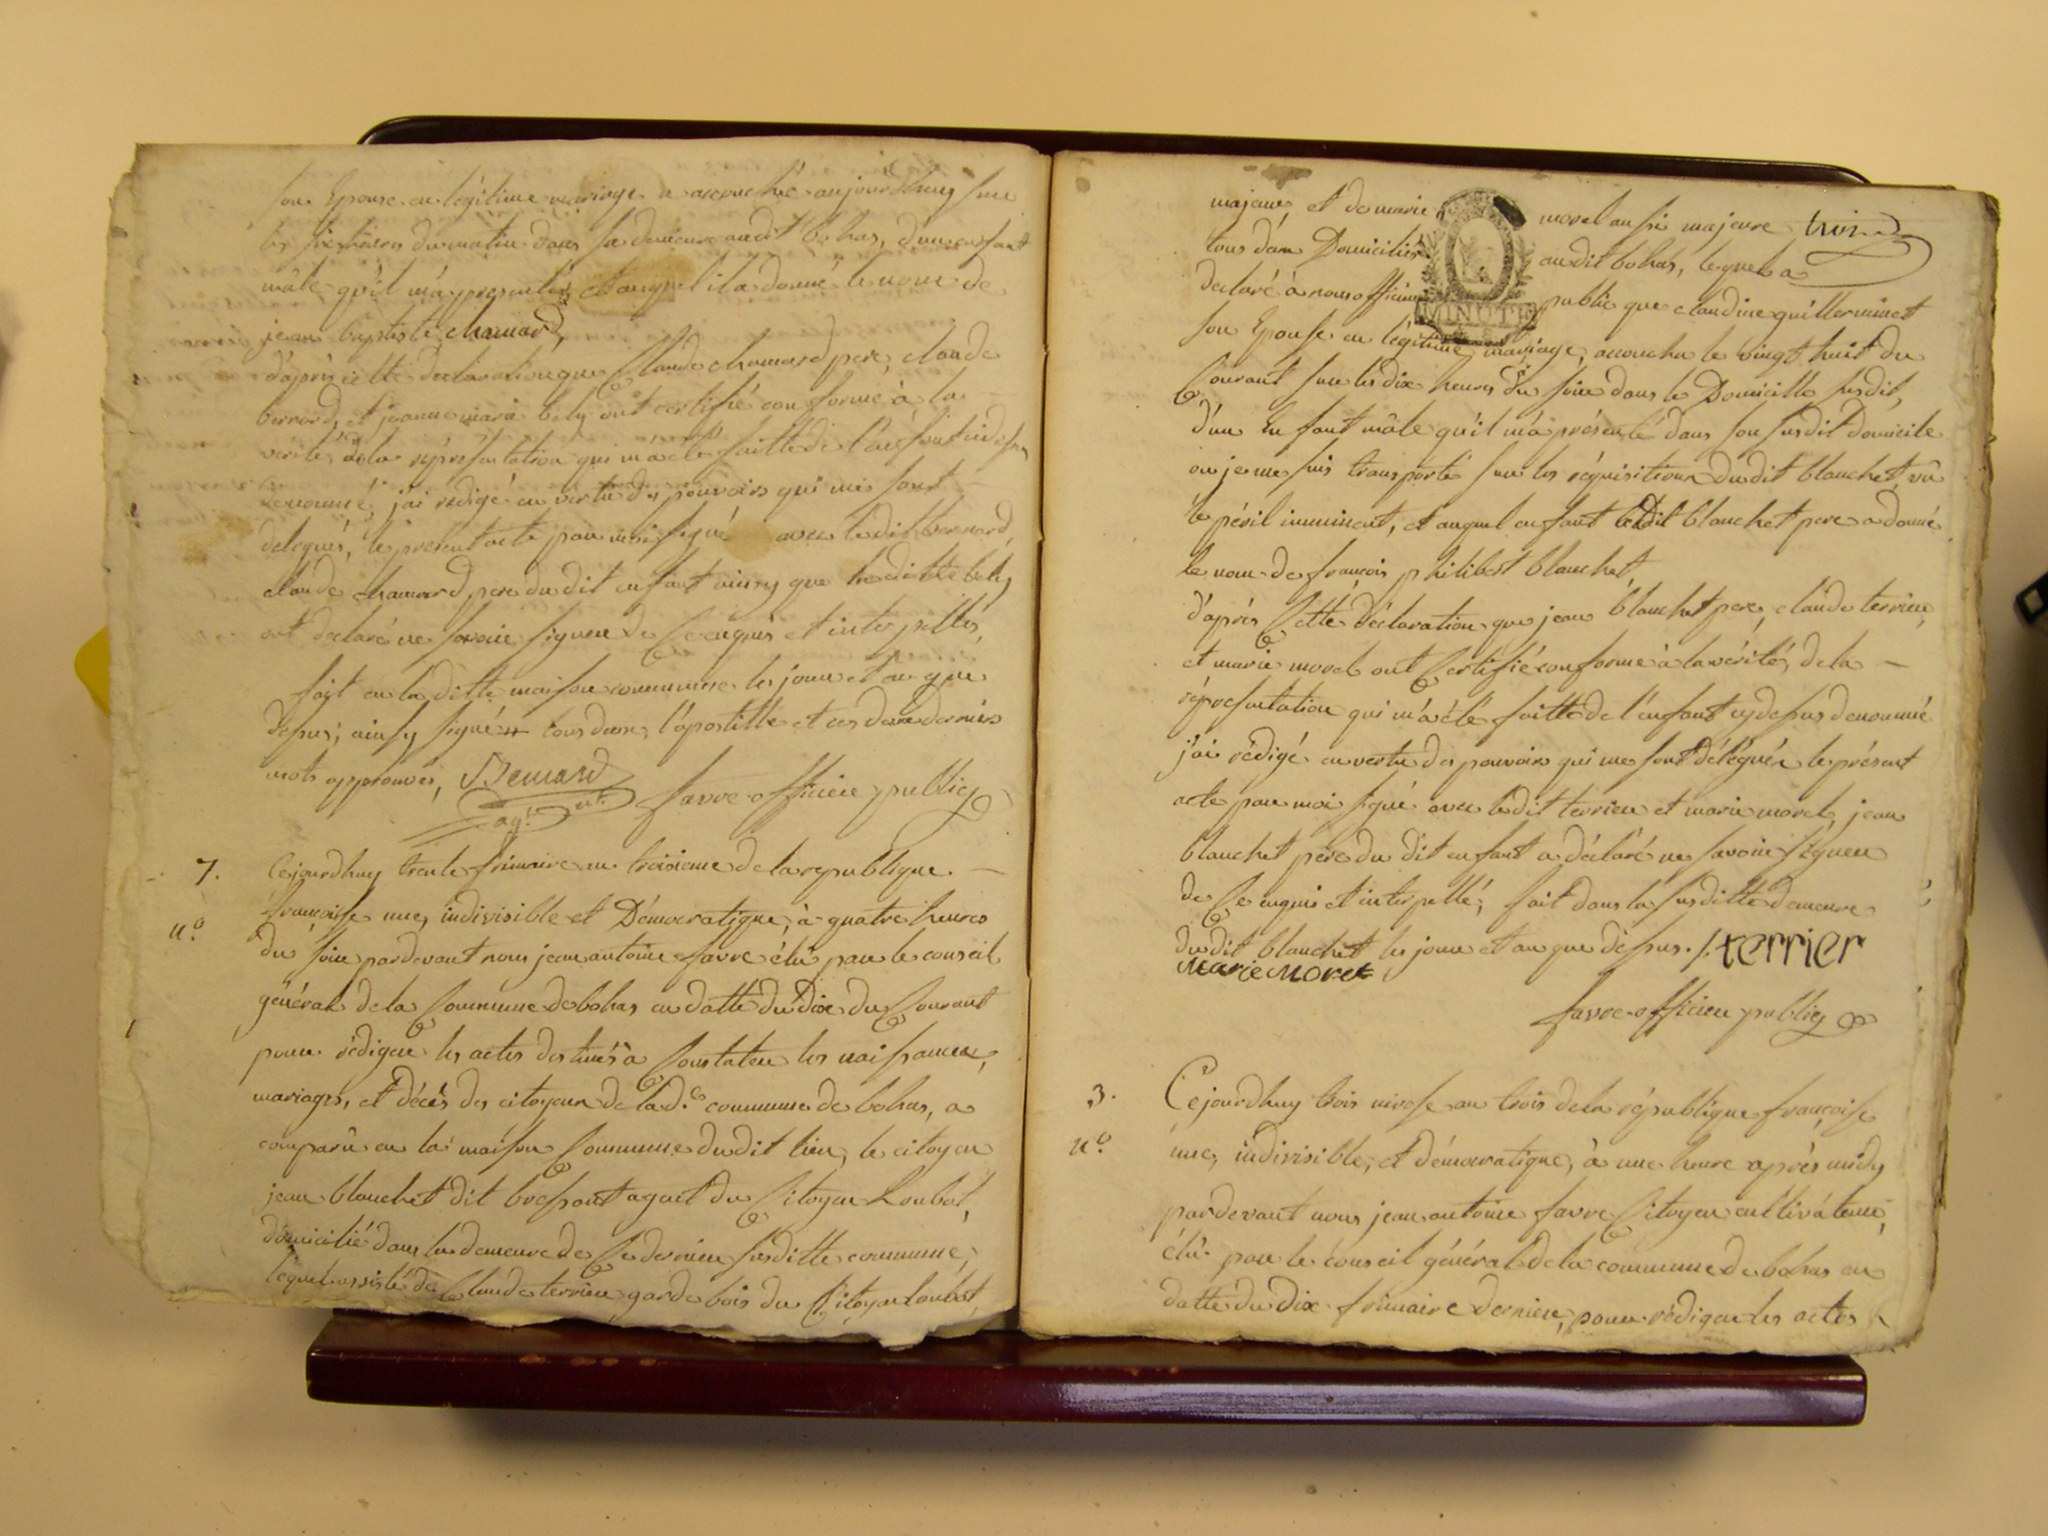 son Epouse en légitime mariage a accouchée aujourdhuy sur
les six heures du matin dans sa demeure audit bohas, d'un enfant
mâle qu'il m'a presenté, et auquel il a donné le nom de
jean baptiste chamard,
d'après cette declaration que Claude chamard pere, claude
bernard, et jeanne marie bely ont certifié conforme à la
vérité, de la représentation qui m'a été faitte de l'enfant
denommé, j'ai redigé en vertu des pouvoirs qui me sont
delegués, le present acte pour moi signé avec ledit bernard,
claude chamard, pere dudit enfant ainsy que laditte bely
ont declaré ne savoir signer de ce enquis et interpellés,
fait en laditte maison commune les jour et an que
dessus; ainsy signé tous deux, l'apostille et ces deux derniers
mots approuvés, Bernard
agt. nt. favre officier publicq
7. Cejourdhuy trente frimaire an troisieme de la republique
n.° françoise une, indivisible et Démocratique, à quatre heures
du soir pardevant nous jean antoine favre élu par le conseil
général de la Commune de bohas en datte du Dix du Courant
pour rédiger les actes destinés à Constater les naissances,
mariages, et décès des citoyens de lad.e commune de bohas, a
comparu en la maison Commune dudit lieu, le citoyen
jean blanchet dit bressout agent du Citoyen Loubat,
domicilié dans la demeure de Ce dernier susditte commune,
lequel assisté de Claude terrier garde bois du Citoyen loubat,
majeur, et de marie morel aussi majeure trois
tous deux Domiciliés audit bohas, lequel a
declaré à nous officier public que claudine guillerminet
MINUTE
son Epouse en légitime mariage, accoucha le vingt huit du
Courant sur les dix heures du soir dans le Domicille susdit,
d'un Enfant mâle qu'il m'a présenté dans son susdit domicile
ou je me suis transporté sur les réquisitions dudit blanchet, vû
le péril imminent, et auquel enfant ledit blanchet pere a donné
le nom de françois philibert blanchet
d'après Cette déclaration que jean blanchet pere, claude terrier,
et marie morel ont Certifié conforme à la vérité, de la
représentation qui m'a été faitte de l'enfant cydessus denommé
j'ai rédigé en vertu des pouvoirs qui me sont délégués le présent
acte par moi signé avec ledit terrier et marie morel, jean
blanchet père du dit enfant a déclaré ne savoir signer
de Ce enquis et interpellé; fait dans la susditte demeure
dudit blanchet les jour et an que dessus. terrier
Marie Morel
favre officier publicq
3. Cejourdhuy trois nivose an trois de la république françoise
n.° une, indivisible, et démocratique, à une heure après midy
pardevant nous jean antoine favre Citoyen cultivateur,
élu par le conseil général de la commune de bohas en
datte du dix frimaire dernier, pour rédiger les actes